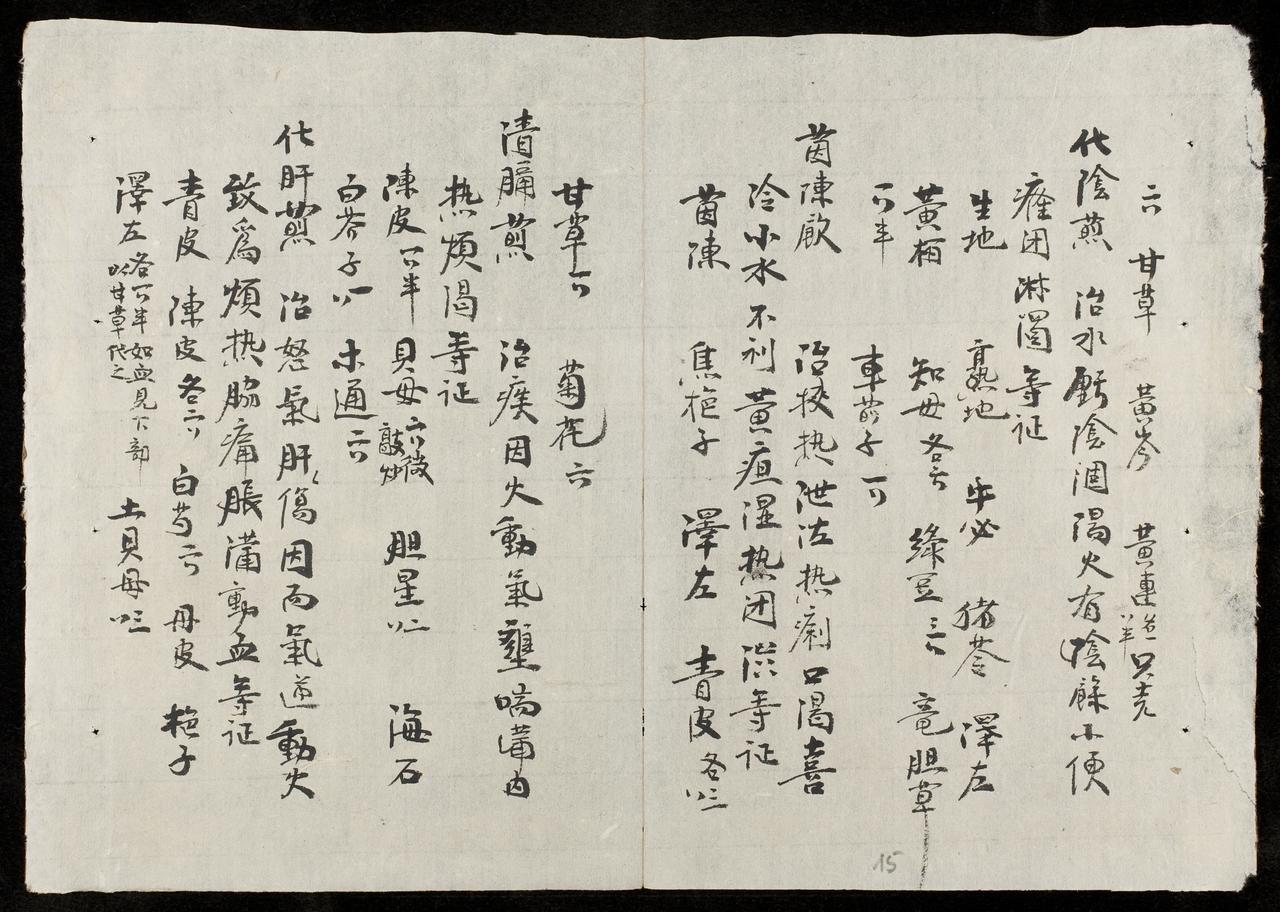 甘草 黄芩 黄連
化陰煎 治水虧陰涸陽火有陰餘小便
癃闭淋濁等证
生地 熟地 牛必 猪苓 澤左
黄柏 知母各 綠豆 竜胆草
半 車前子
茵陳飲 治挾热泄泻热痢口渴喜
冷小水不利黄疸湿热闭渋等证
茵陳 焦栀子 澤左 青皮各
甘草 菊花
清膈煎 治痰因火動氣壅喘满内
热烦渴等证
陳皮 半 貝母 微敲炒 胆星 海石
白芥子 木通
化肝煎 治怒氣肝傷因而氣逆動火
致爲烦热脇痛脹满動血等证
青皮 陳皮各 白芍 丹皮 栀子
澤左各 半如血見下部以甘草代之 土貝母
15